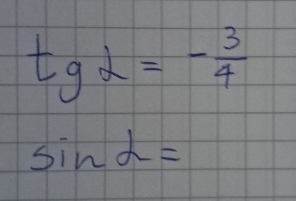 tg α = -3/4
sin α =